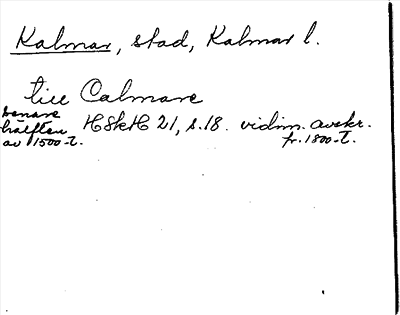 Kalmar, stad, Kalmar l.
till Calmare
senare hälften av 1500-t.
HSkH 21, s.18. vidim. avskr. fr. 1800-t.